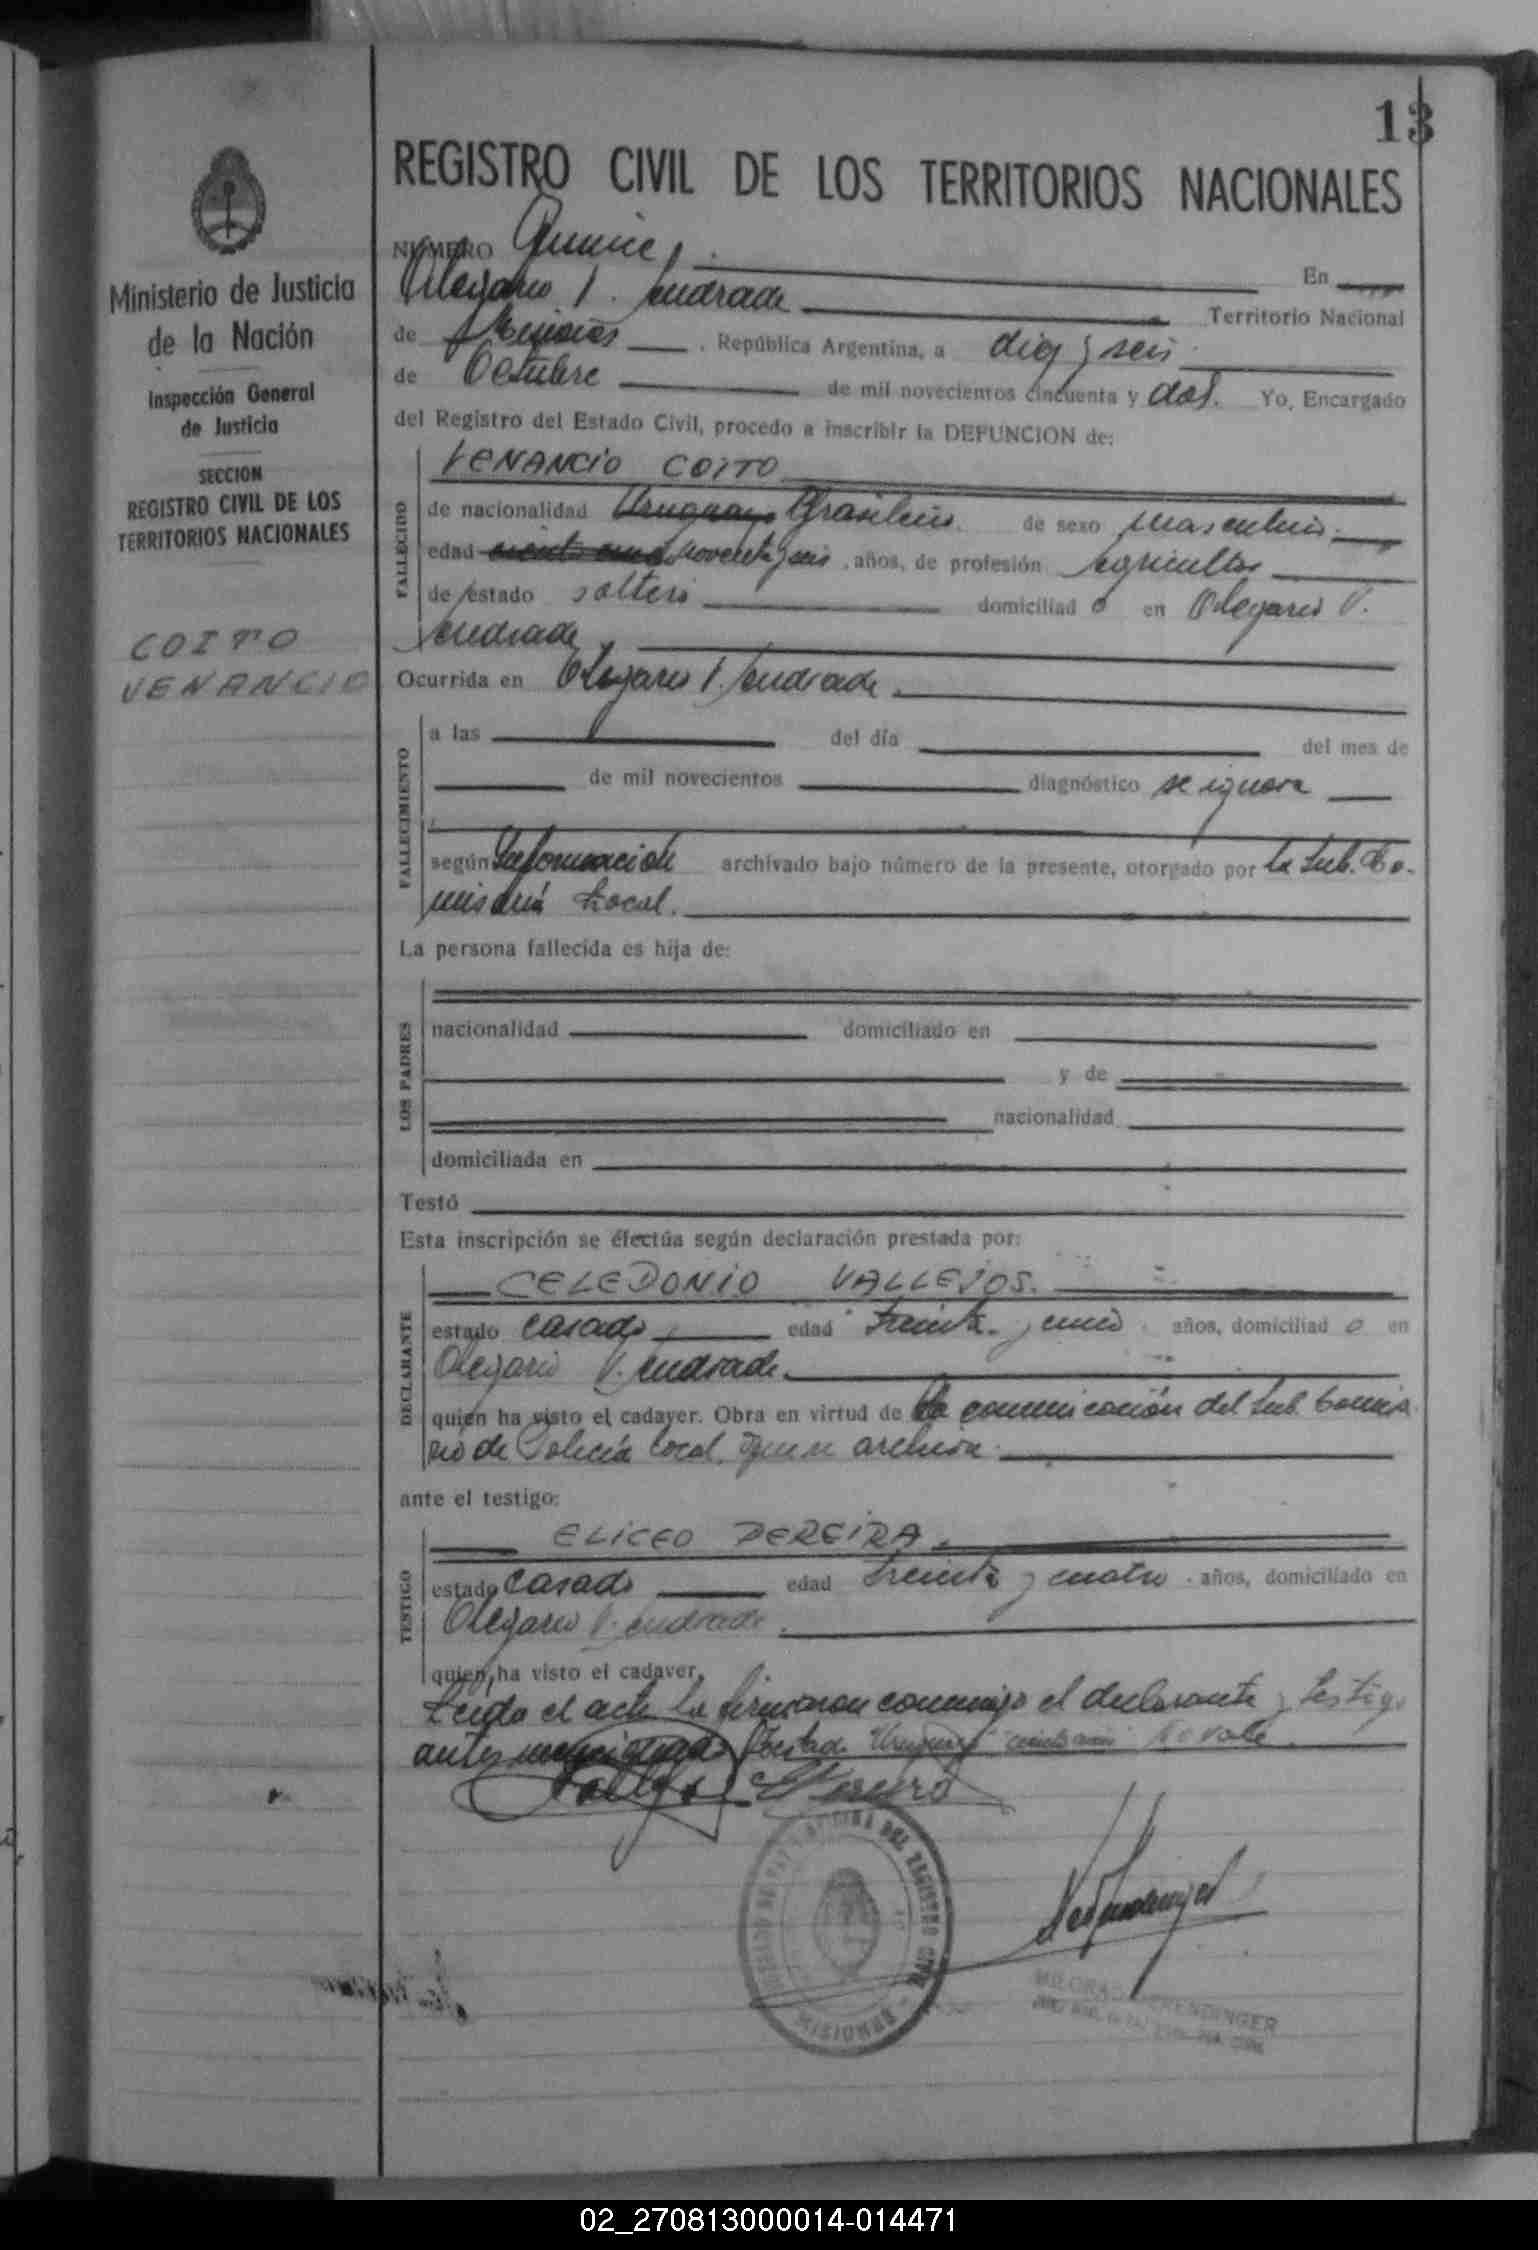 13
REGISTRO CIVIL DE LOS TERRITORIOS NACIONALES
Ministerio de Justicia
de la Nación
Inspección General
de Justicia
SECCION
REGISTRO CIVIL DE LOS
TERRITORIOS NACIONALES
COITO
VENANCIO
NUMERO Quince En
Olegario V. Andrade Territorio Nacional
de Misiones, República Argentina, a diez y seis
de Octubre de mil novecientos cincuenta y dos. Yo, Encargado
del Registro del Estado Civil, procedo a inscribir la DEFUNCION de:
FALLECIDO
VENANCIO COITO
de nacionalidad Uruguayo Brasileño. de sexo masculino.
edad noventa y seis, años, de profesión agricultor
de estado soltero domiciliad o en Olegario V.
Andrade
Ocurrida en Olegario V. Andrade
FALLECIMIENTO
a las del día del mes de
de mil novecientos diagnóstico se ignora
según Información archivado bajo número de la presente, otorgado por la Sub. Co-
misaría Local.
La persona fallecida es hija de:
LOS PADRES
nacionalidad domiciliado en
y de
nacionalidad
domiciliada en
Testó
Esta inscripción se efectúa según declaración prestada por:
DECLARANTE
CELEDONIO VALLEJOS.
estado casado edad treinta y años, domiciliad o en
Olegario V. Andrade.
quien ha visto el cadaver. Obra en virtud de la comunicación del Sub. Comisa
rio de Policía local, que se archiva.
ante el testigo:
TESTIGO
ELICEO PEREIRA.
estado casado edad treinta y cuatro. años, domiciliado en
Olegario V. Andrade.
quien, ha visto el cadaver,
Leida el acta la firmaron conmigo el declarante y testigo
antes mencionado Testado Uruguayo No vale.
REGISTRO CIVIL
MISIONES
02_270813000014-014471